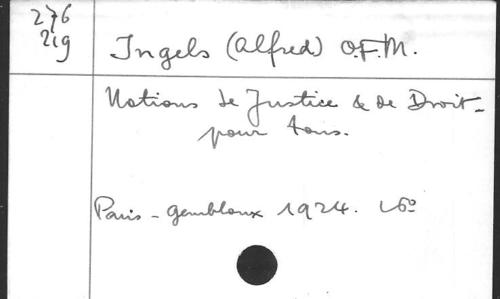 276
219
Ingels (Alfred) O.F.M.
Notions de Justice & de Droit
pour tous.
Paris - Gembloux 1924. 16º